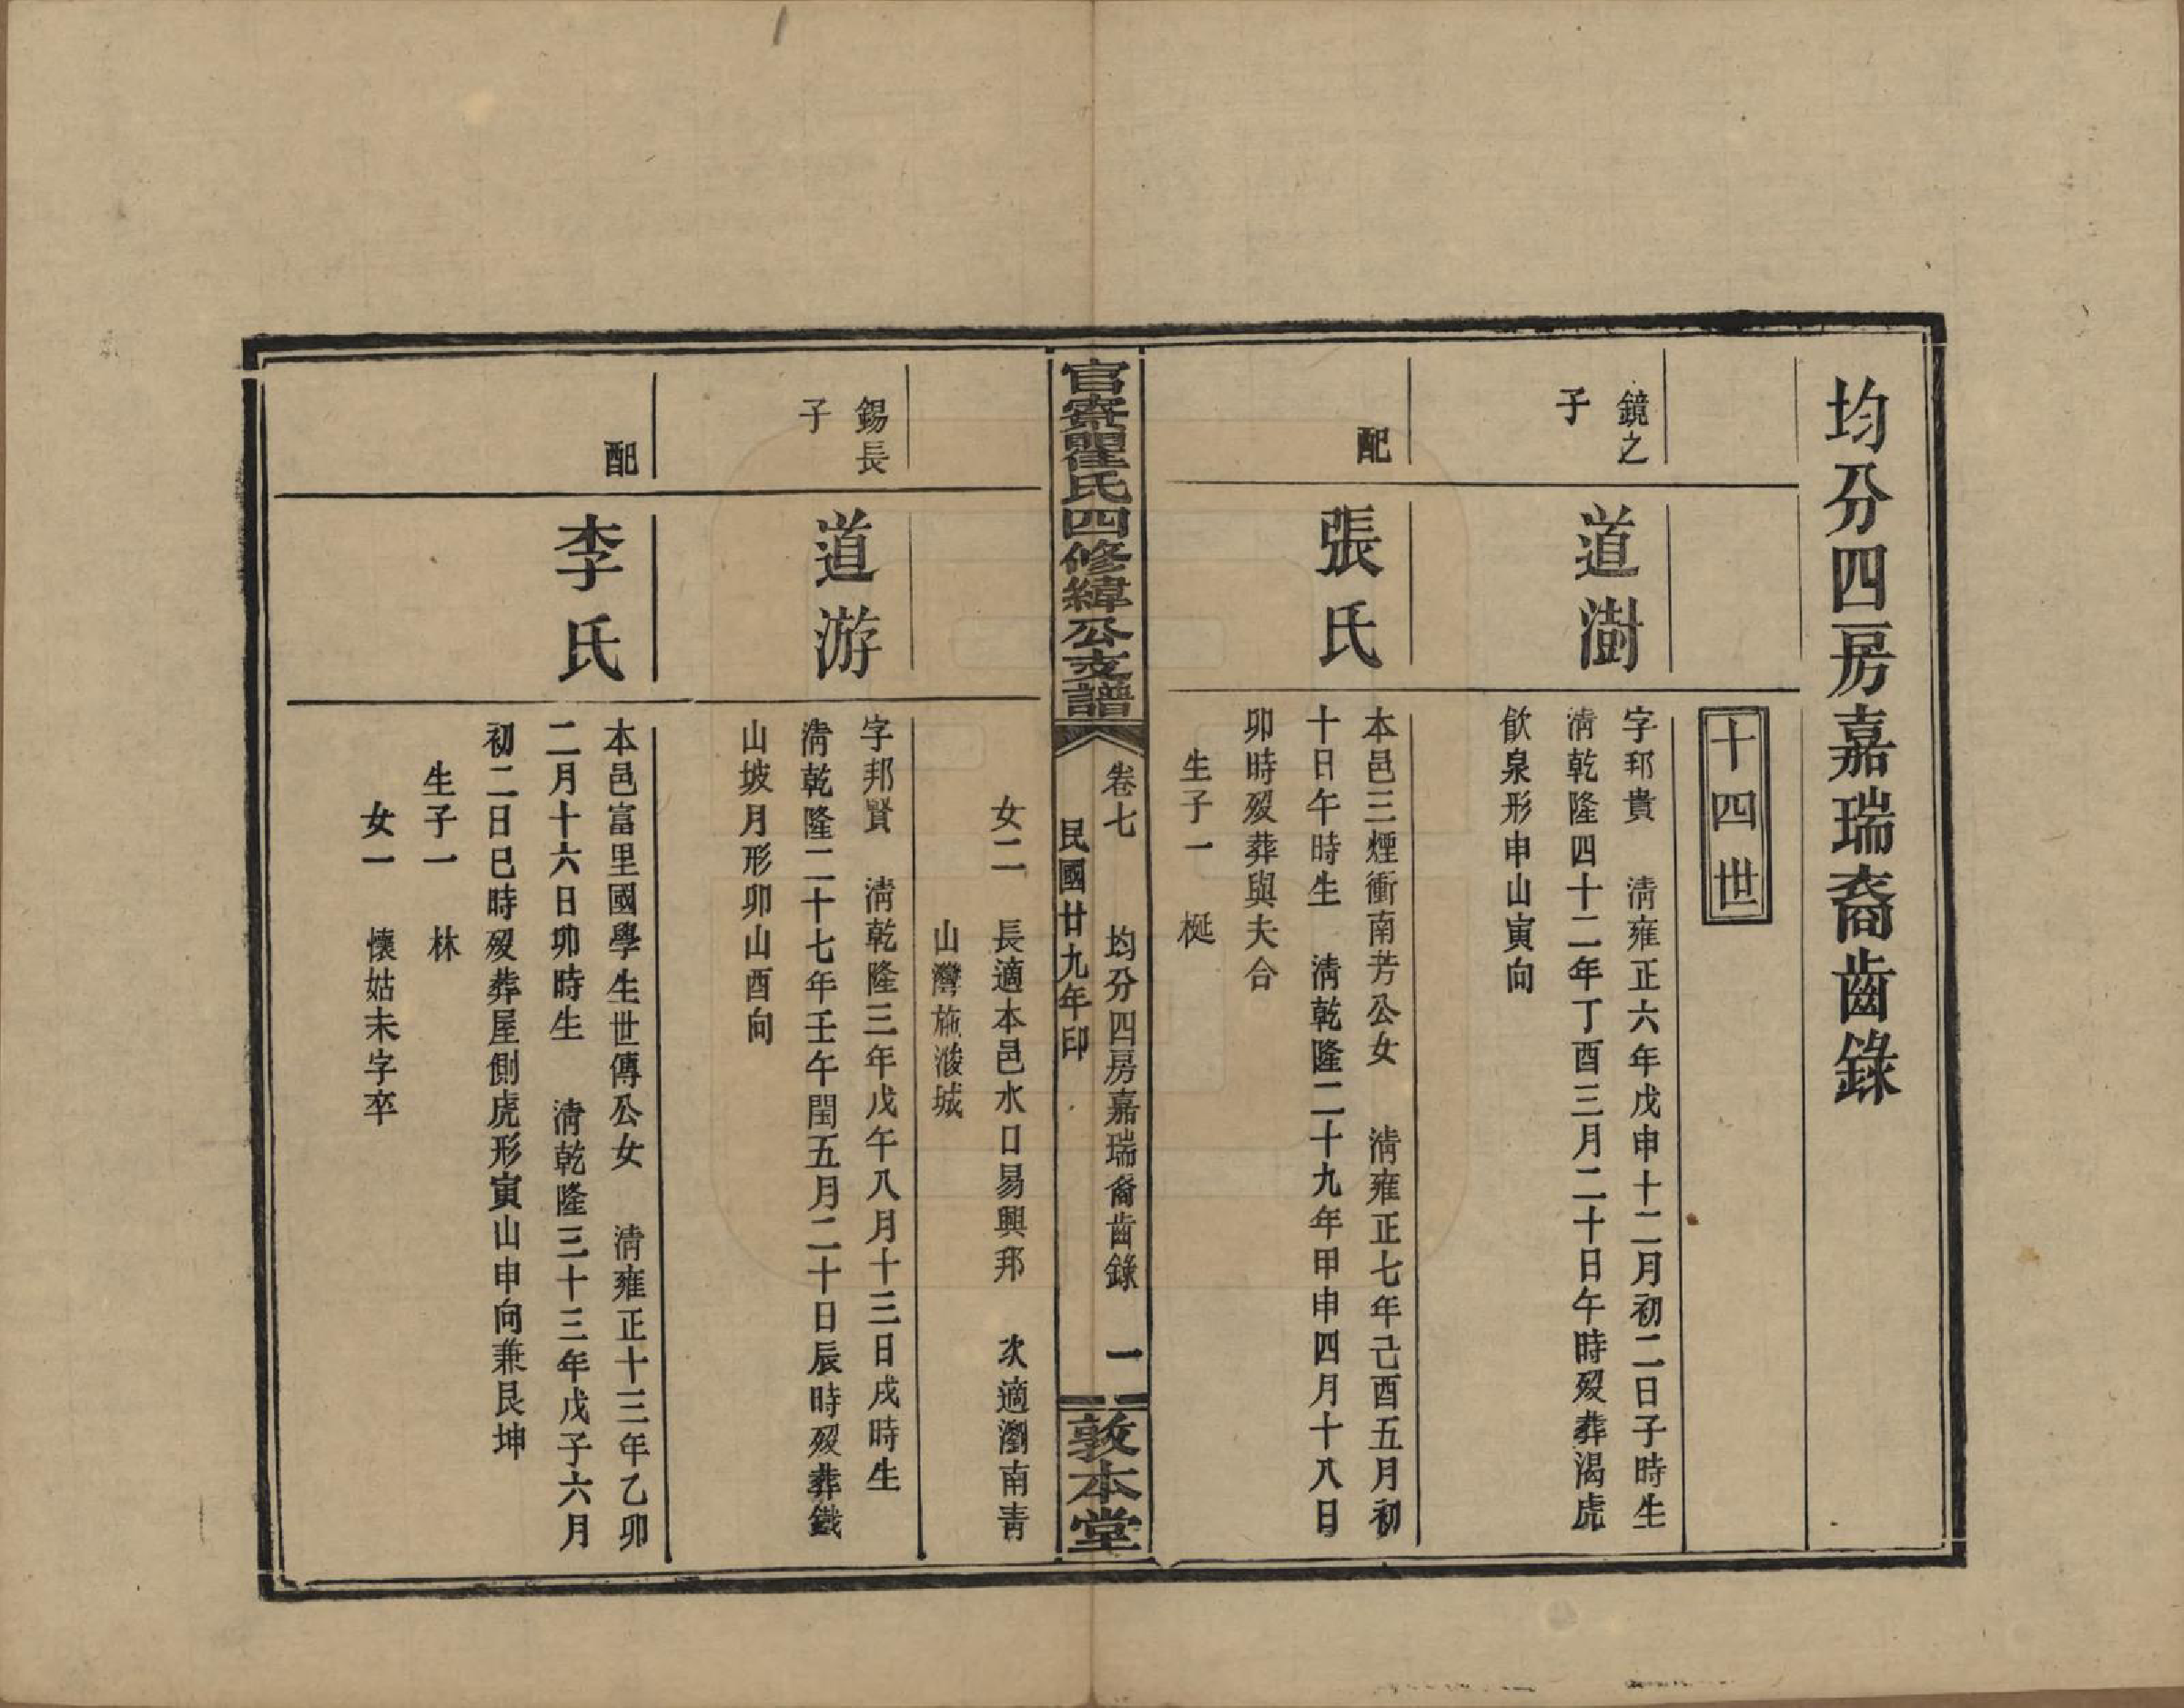 均分四房嘉瑞裔齒錄
十四世
鏡之
子
道澍
字邦貴　淸雍正六年戊申十二月初二日子時生
淸乾隆四十二年丁酉三月二十日午時歿葬渴虎
飲泉形申山寅向
配
張氏
本邑三煙衝南芳公女　淸雍正七年己酉五月初
十日午時生　淸乾隆二十九年甲申四月十八日
卯時歿葬與夫合
生子一　梴
官寮瞿氏四修緯公支譜
卷七　均分四房嘉瑞裔齒錄　一
民國廿九年印
敦本堂
女二　長適本邑水口易興邦　次適瀏南靑
山灣施浚城
錫長
子
道游
字邦賢　淸乾隆三年戊午八月十三日戌時生
淸乾隆二十七年壬午閏五月二十日辰時歿葬鐵
山坡月形卯山酉向
配
李氏
本邑富里國學生世傳公女　淸雍正十三年乙卯
二月十六日卯時生　淸乾隆三十三年戊子六月
初二日巳時歿葬屋側虎形寅山申向兼艮坤
生子一　林
女一　懷姑未字卒